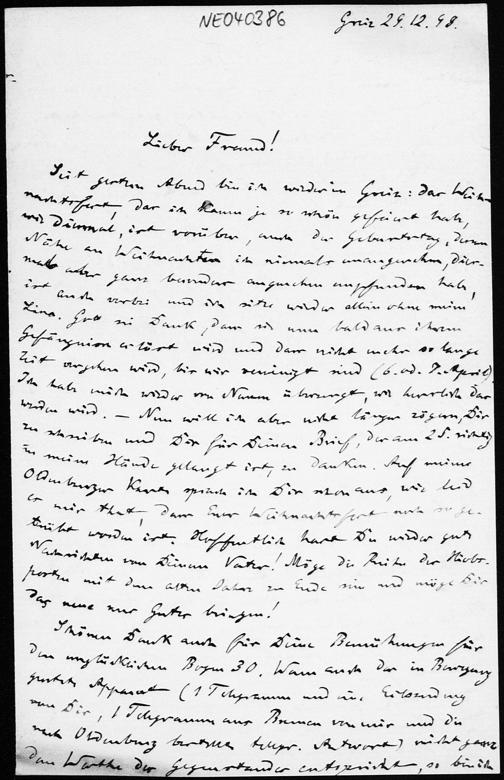 NE040386
Greiz 29.12.98.
Lieber Freund!
Seit gestern Abend bin ich wieder in Greiz: das Weih-
nachtsfest, das ich kaum je so schön gefeiert habe,
wie diesmal, ist vorüber, auch der Geburtstag, dessen
Nähe an Weihnachten ich niemals unangenehm, dies-
mal aber ganz besonders angenehm empfunden habe,
ist auch vorbei und ich sitze wieder allein ohne meine
Lina. Gott sei Dank, dass sie nun bald aus ihrem
Gefängnis erlöst wird und dass nicht mehr so lange
Zeit vergehen wird, bis wir vereinigt sind (6. od. 7. April).
Ich habe mich wieder von Neuem überzeugt, wie herrlich das
werden wird. — Nun will ich aber nicht länger zögern, Dir
zu schreiben und Dir für Deinen Brief, der am 25. richtig
in meine Hände gelangt ist, zu danken. Auf meine
Oldenburger Karte sprach ich Dir schon aus, wie leid
es mir that, dass Euer Weihnachtsfest noch so ge-
trübt worden ist. Hoffentlich hast Du wieder gute
Nachrichten von Deinem Vater! Möge die Reihe der Hiobs-
posten mit dem alten Jahre zu Ende sein und möge Dir
das neue nur Gutes bringen!
Schönen Dank auch für Deine Bemühungen für
den unglücklichen Bogen 30. Wenn auch der in Bewegung
gesetzte Apparat (1 Telegramm und eine Eilsendung
von Dir, 1 Telegramm aus Bremen von mir und die
nach Oldenburg bestellte telegr. Antwort) nicht ganz
dem Werthe des Gegenstandes entspricht, so bin ich